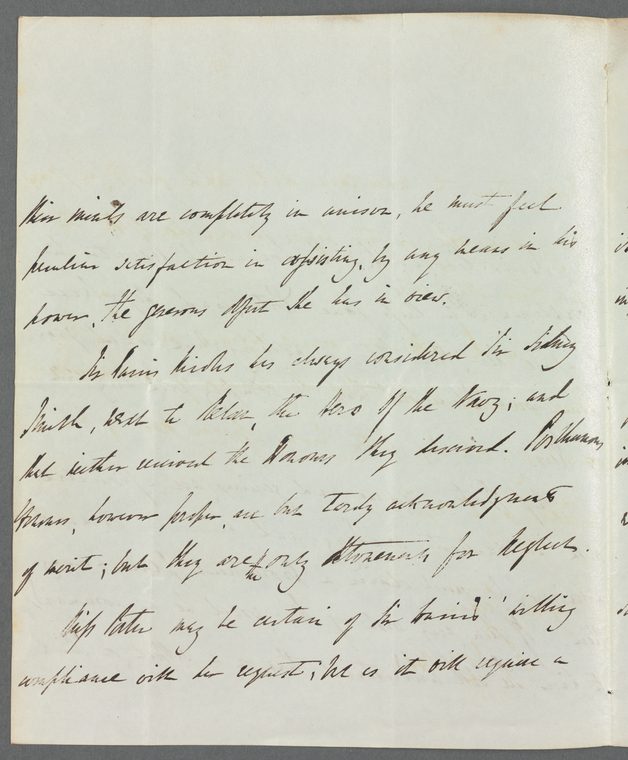 their minds are completely in unison, he must feel
peculiar satisfaction in assisting, by any means in his
power, the generous object she has in view.
Sir Harris Nicolas has always considered Sir Sidney
Smith, next to Nelson, the Hero of the Navy; and
that neither received the Honours they deserved. Posthumous
Honours, however proper, are but tardy acknowledgments
of merit; but they are the only atonements for neglect.
Miss Porter may be certain of Sir Harris' willing
compliance with her request; but as it will require a